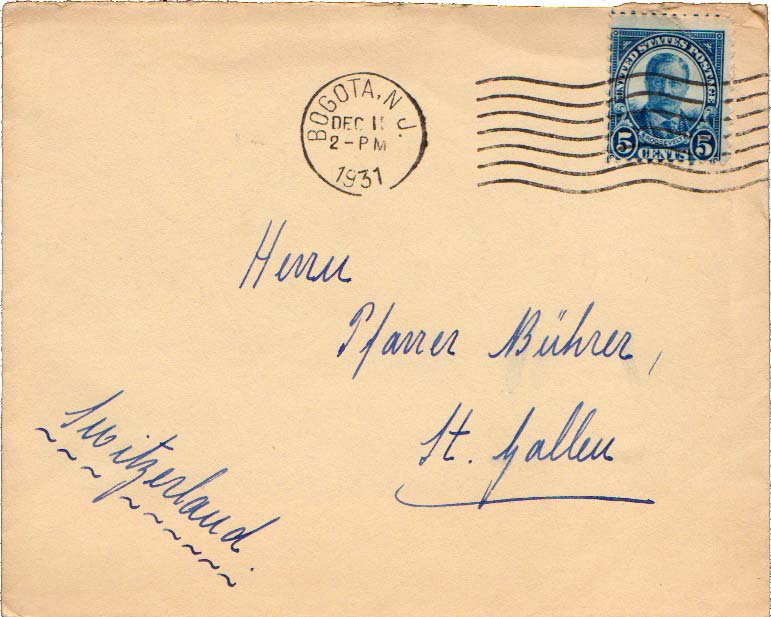 UNITED STATES POSTAGE
ROOSEVELT
5 CENTS 5
BOGOTA, N. J.
DEC 11
2-PM
1931
Herrn
Pfarrer Bührer,
St. Gallen
Switzerland.